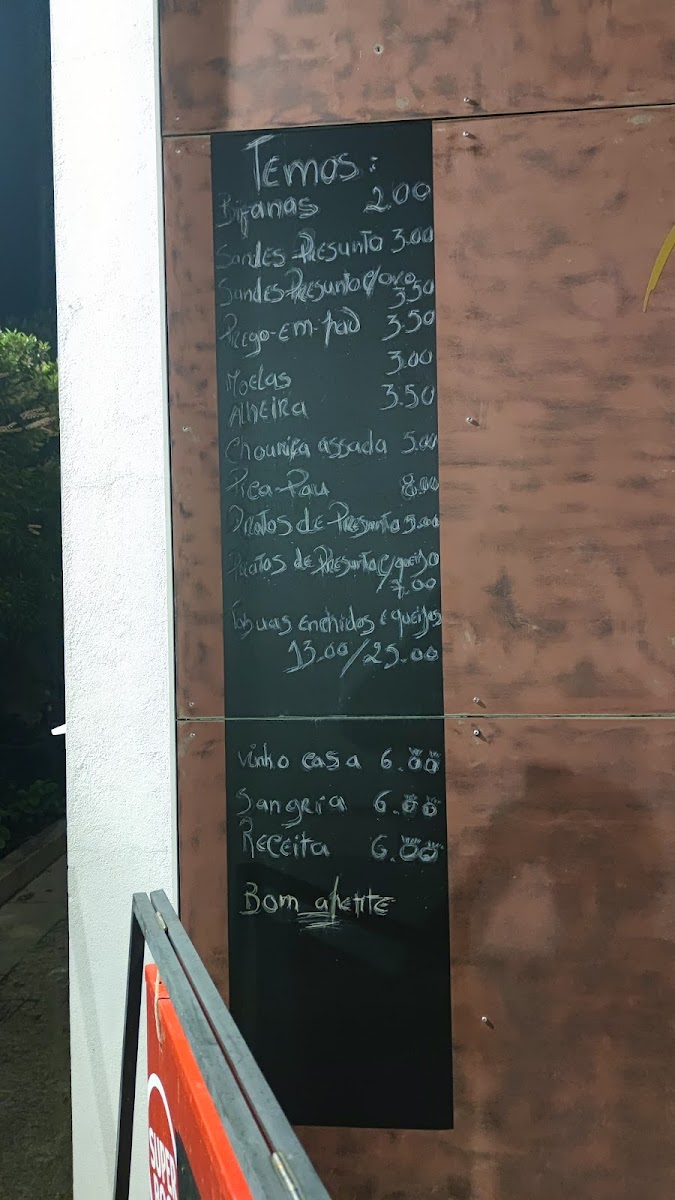 Temos:
Bifanas 2.00
Sandes Presunto 3.00
Sandes Presunto c/ovo
3.50
Prego-em-pao 3.50
Moelas 3.00
Alheira 3.50
Chouriça assada 5.00
Pica-Pau 8.00
Pratos de Presunto 5.00
Pratos de Presunto c/queijo
7.00
Tabuas enchidos e queijos
13.00/25.00
Vinho casa 6.00
Sangria 6.00
Receita 6.00
Bom apetite
SUPER